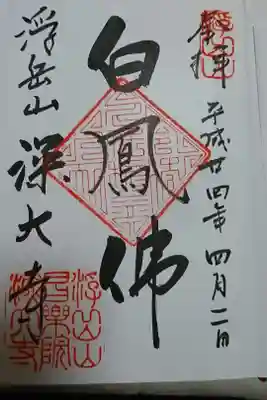 奉拝
平成廿四年四月二日
白鳳佛
浮岳山
深大寺
浮岳山
昌樂院
深大寺